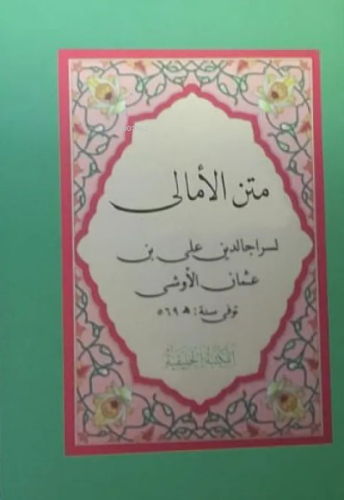 متن الأمالى
لسراجالدين على بن
عثمان الأوشى
توفى سنة: ه ٥٦٩
المكتبة الحنيفية